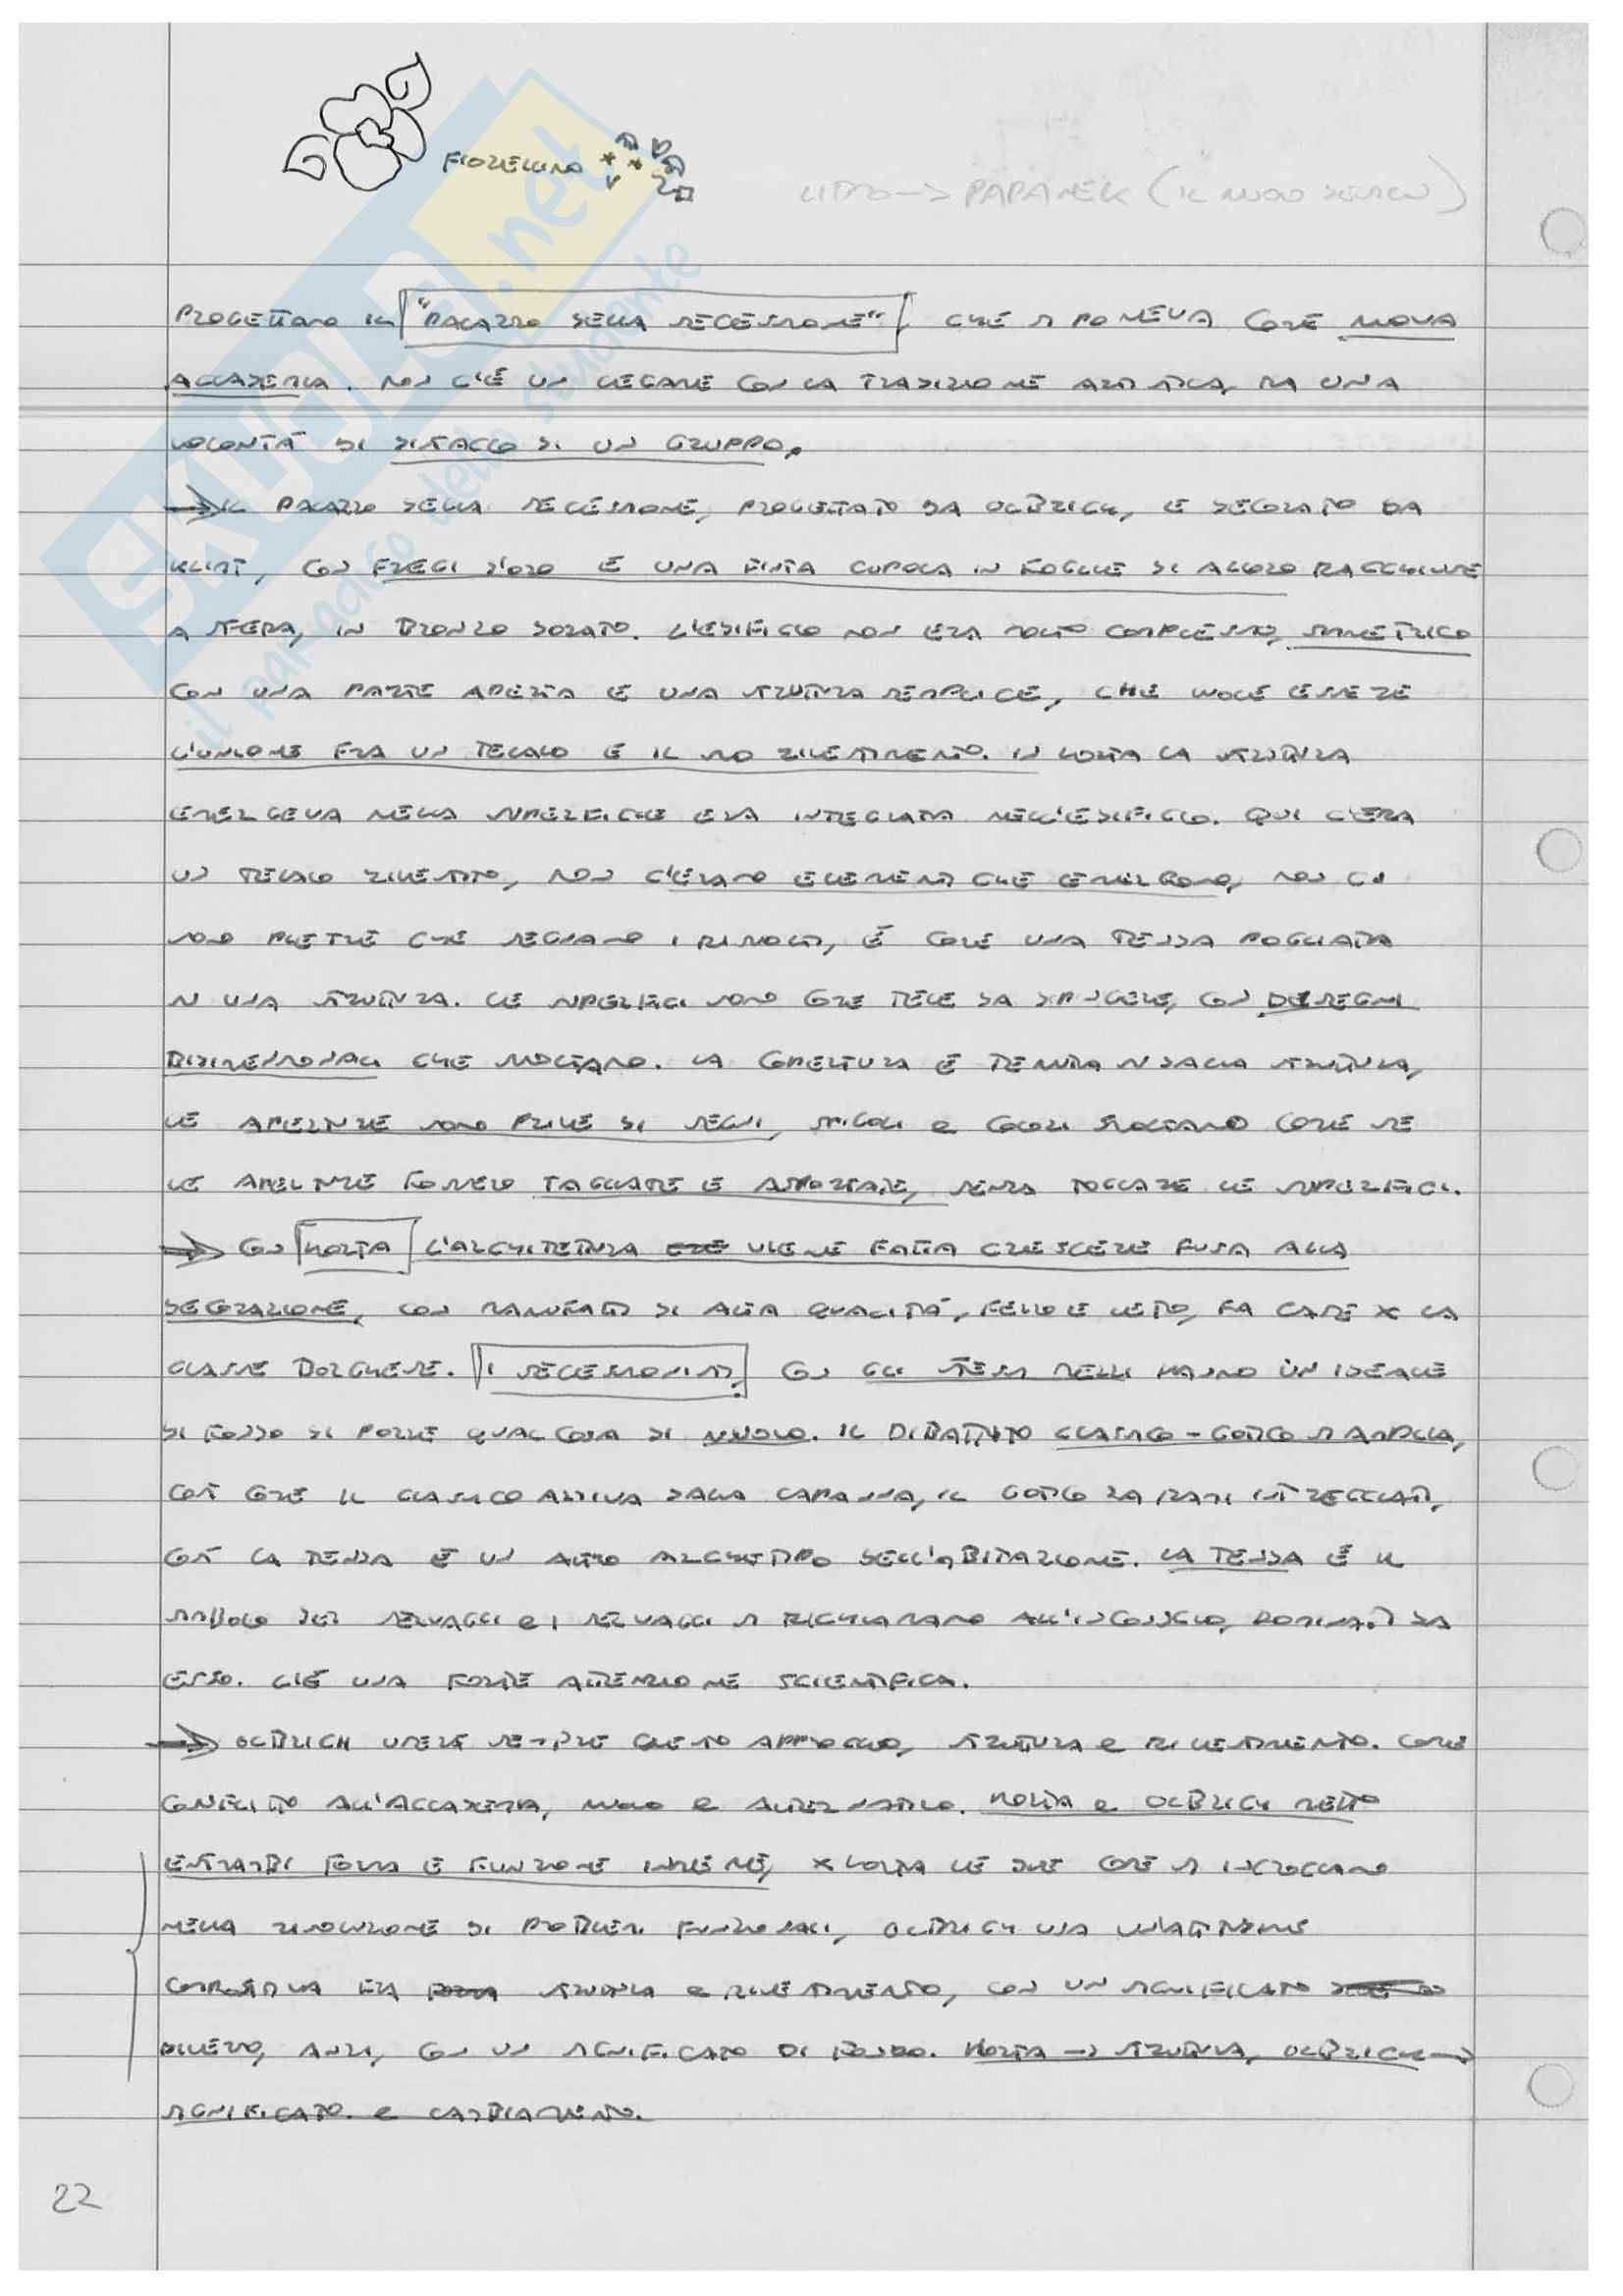 FIORELLINO
LIBRO -> PAPANEK (IL NUOVO DESIGN)
SKUOLA.net
il paradiso dello studente
PROGETTANO IL "PALAZZO DELLA SECESSIONE", CHE SI PONEVA COME NUOVA
ACCADEMIA. NON C'È UN LEGAME CON LA TRADIZIONE ARTISTICA, MA UNA
VOLONTÀ DI DISTACCO DI UN GRUPPO.
-> IL PALAZZO DELLA SECESSIONE, PROGETTATO DA OLBRICH, E DECORATO DA
KLIMT, CON FREGI D'ORO E UNA FINTA CUPOLA IN FOGLIE DI ALLORO RACCHIUSE
A SFERA, IN BRONZO DORATO. L'EDIFICIO NON ERA MOLTO COMPLESSO, SIMMETRICO
CON UNA PARTE APERTA E UNA STRUTTURA SEMPLICE, CHE VUOLE ESSERE
L'UNIONE FRA UN TELAIO E IL SUO RIVESTIMENTO. IN HORTA LA STRUTTURA
EMERGEVA NELLA SUPERFICIE ERA INTEGRATA NELL'EDIFICIO. QUI C'ERA
UN TELAIO RIVESTITO, NON C'ERANO ELEMENTI CHE EMERGONO, NON CI
SONO PIETRE CHE SEGNANO I RISVOLTI, È COME UNA TENDA POGGIATA
SU UNA STRUTTURA. LE SUPERFICI SONO COME TELE DA DIPINGERE, CON DISEGNI
BIDIMENSIONALI CHE SVOLTANO. LA COPERTURA È TENUTA SU DALLA STRUTTURA,
LE APERTURE SONO PRIVE DI SEGNI, SPIGOLI e COLORI SVOLTANO COME SE
LE APERTURE FOSSERO TAGLIATE E ASPORTATE, SENZA TOCCARE LE SUPERFICI.
-> CON HORTA L'ARCHITETTURA VIENE FATTA CRESCERE FUSA ALLA
DECORAZIONE, CON MANUFATTI DI ALTA QUALITÀ, FERRO E VETRO, FA CASE X LA
CLASSE BORGHESE. I SECESSIONISTI, CON GLI STESSI MEZZI HANNO UN IDEALE
DI FONDO DI PORRE QUALCOSA DI NUOVO. IL DIBATTITO CLASSICO - GOTICO SI AMPLIA,
COSÌ COME IL CLASSICO ARRIVA DALLA CAPANNA, IL GOTICO DA RAMI INTRECCIATI,
COSÌ LA TENDA È UN ALTRO ARCHETIPO DELL'ABITAZIONE. LA TENDA È IL
SIMBOLO DEI SELVAGGI e I SELVAGGI SI RICHIAMANO ALL'INCONSCIO, DOMINATI DA
ESSO. C'È UNA FORTE ATTENZIONE SCIENTIFICA.
-> OLBRICH USERÀ SEMPRE QUESTO APPROCCIO, STRUTTURA e RIVESTIMENTO. COME
CONFLITTO ALL'ACCADEMIA, NUOVO e ALTERNATIVO. HORTA e OLBRICH METTONO
ENTRAMBI FORMA E FUNZIONE INSIEME, X HORTA LE DUE COSE SI INCROCIANO
NELLA RISOLUZIONE DI PROBLEMI FUNZIONALI, OLBRICH USA UN'ATTENZIONE
COMPOSITIVA FRA STRUTTURA e RIVESTIMENTO, CON UN SIGNIFICATO
DIVERSO, ANZI, CON UN SIGNIFICATO DI FONDO. HORTA -> STRUTTURA, OLBRICH ->
SIGNIFICATO e CAMBIAMENTO.
22